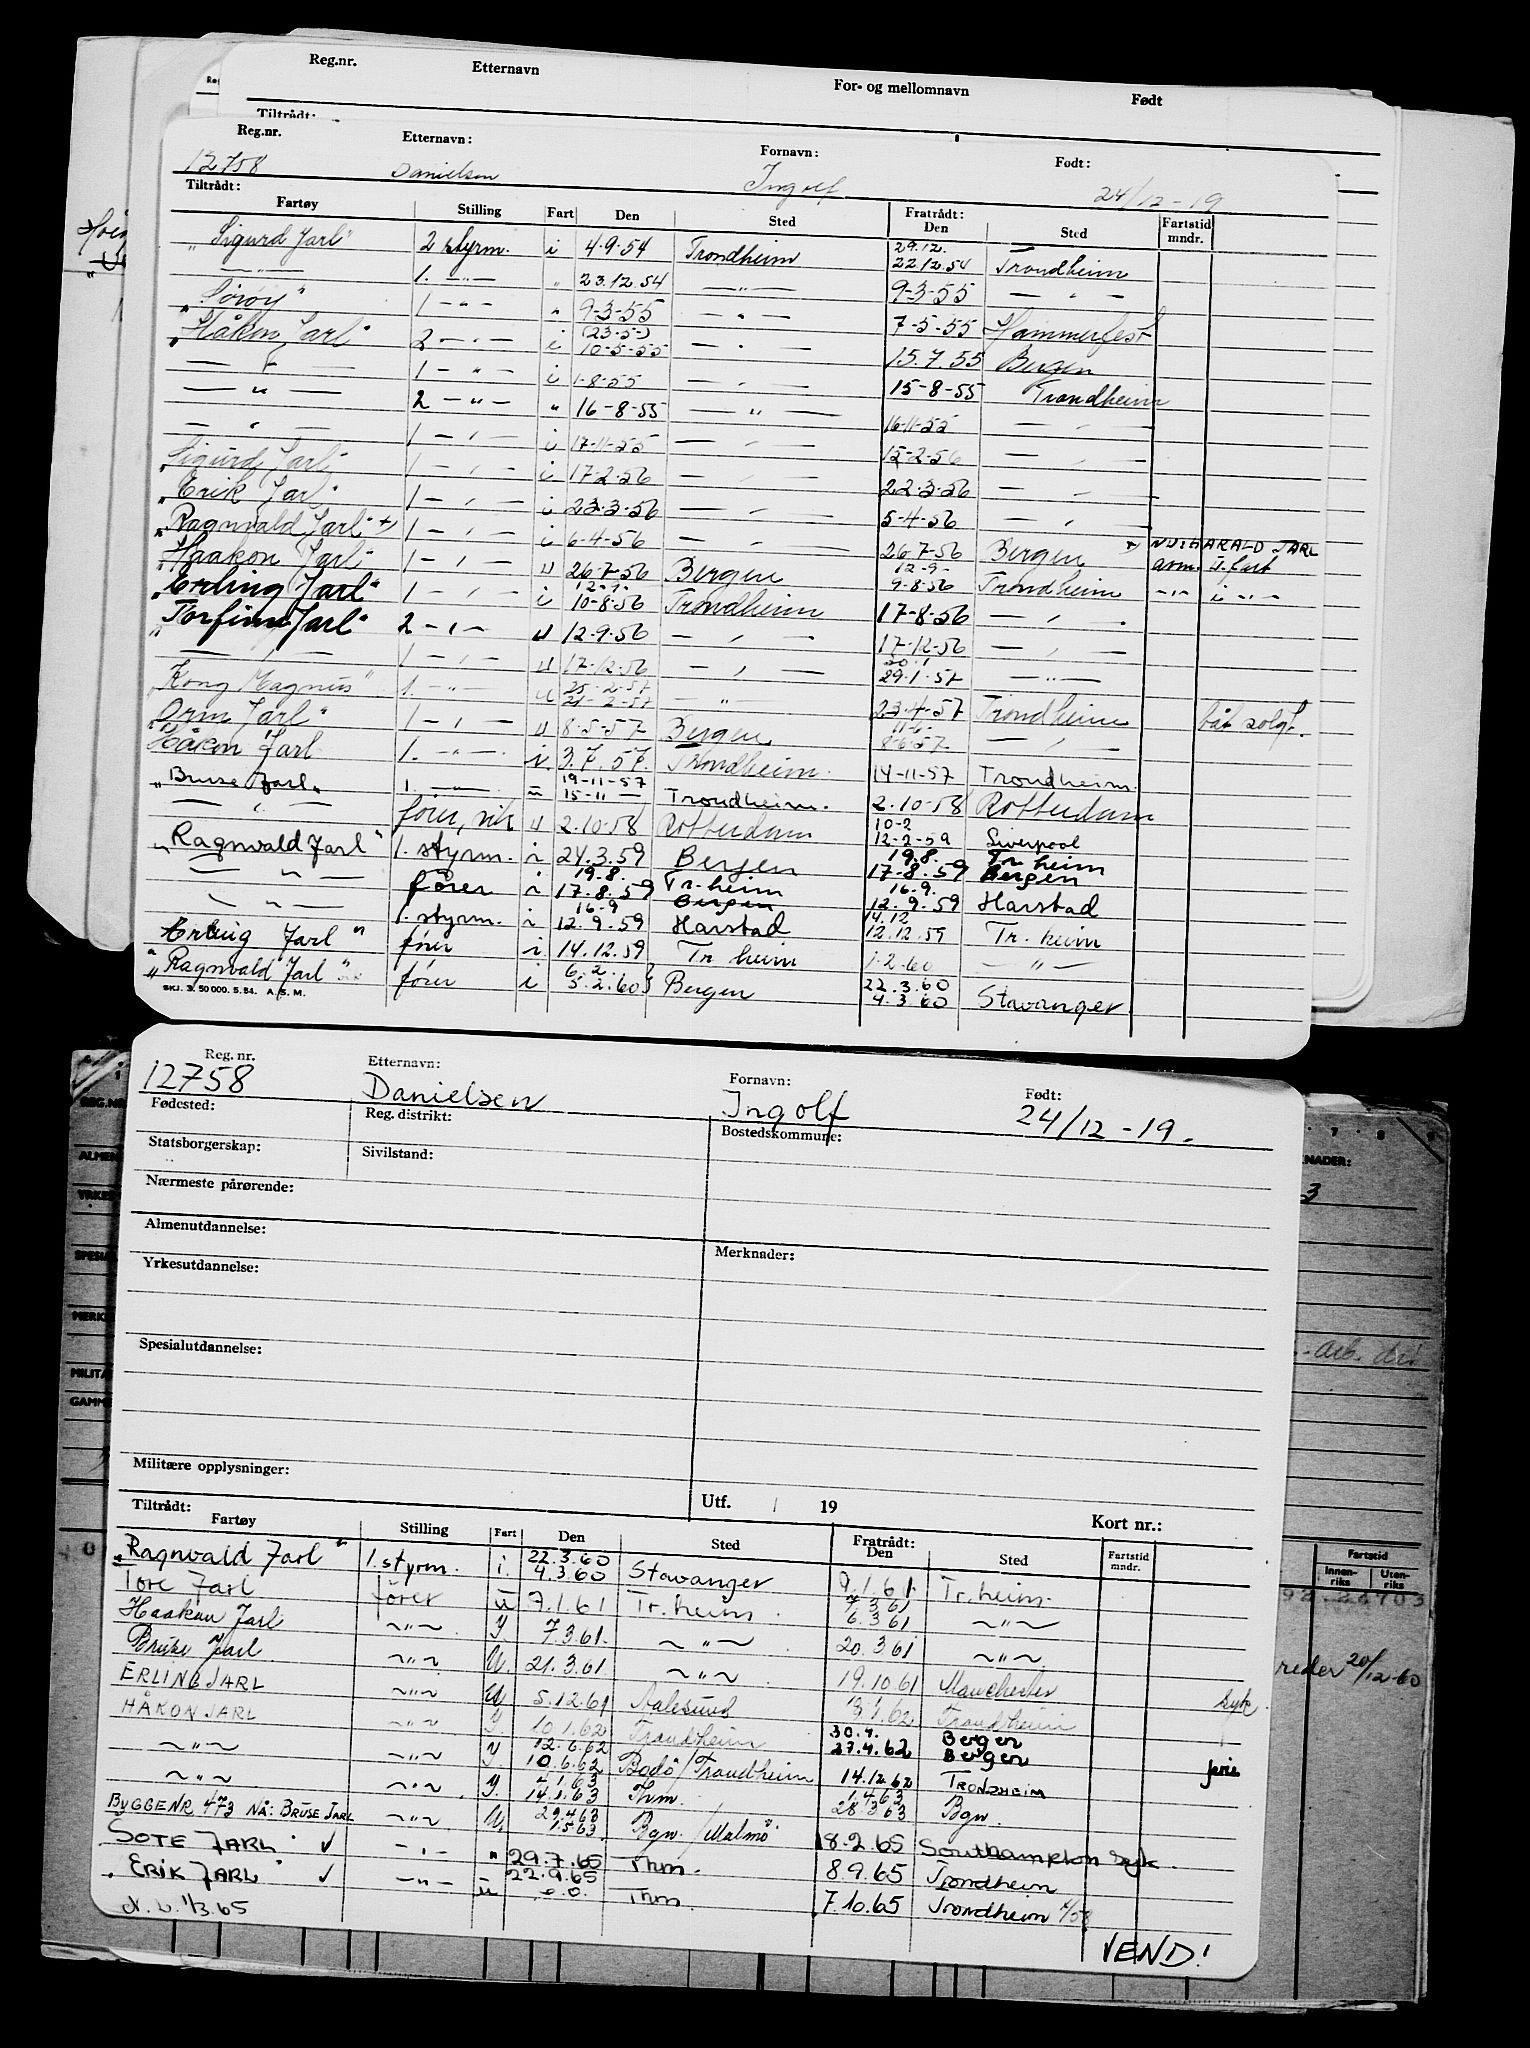 Reg.nr. Etternavn For- og mellomnavn Født
Tiltrådt:
Reg.nr. Etternavn: Fornavn: Født:
12758 Danielsen Ingolf 24/12-19
Tiltrådt: Fratrådt:
Fartøy Stilling Fart Den Sted Den Sted Fartstid mndr.
"Sigurd Jarl" 2 styrm. i 4.9.54 Trondheim 29.12. 22.12.54 Trondheim
—"— 1. —"— " 23.12.54 —"— 9-3-55 —"—
"Sørøy" 1 —"— " 9-3-55 —"— 7-5-55 Hammerfest
"Håkon Jarl" 2 —"— i (23-5-) 10-5-55 —"— 15.7.55 Bergen
—"— 1 —"— i 1-8-55 —"— 15-8-55 Trondheim
—"— 2 —"— " 16-8-55 —"— 16-11-55 —"—
—"— 1 —"— i 17-11-55 —"— 15-2-56 —"—
"Sigurd Jarl" 1 —"— i 17-2-56 —"— 22-3-56 —"—
"Erik Jarl" 1 —"— i 23-3-56 —"— 5-4-56 —"—
"Ragnvald Jarl" +) 1 —"— i 6-4-56 —"— 26-7-56 Bergen +) NU: HARALD JARL
"Haakon Jarl" 1 —"— u 26-7-56 Bergen 12-9- 9-8-56 Trondheim
"Erling Jarl" 1 —"— i 10-8-56 Trondheim 17-8-56 —"—
"Torfinn Jarl" 2 —"— u 12-9-56 —"— 17-12-56 —"—
—"— 1 —"— u 17-12-56 —"— 30.1 29-1-57 —"—
"Kong Magnus" 1. —"— u 25-2-57 21-2-57 —"— 23-4-57 Trondheim båt solgt.
"Orm Jarl" 1 —"— u 8-5-57 Bergen 11-6- 8-6-57 —"—
"Håkon Jarl 1. —"— i 3.7.57. Trondheim. 14-11-57 Trondheim.
"Bruse Jarl" 1. —"— u 19-11-57 15-11 — Trondheim. 2.10-58 Rotterdam
—"— fører, vik u 2.10-58 Rotterdam 10-2 12-2-59 Liverpool
"Ragnvald Jarl" 1. styrm. i 24.3.59 Bergen 19.8. 17.8.59 Tr.heim Bergen
—"— fører i 19.8. 17.8.59 Tr.heim Bergen 16.9. 12.9.59 Harstad
—"— 1. styrm. i 16-9 12.9.59 Harstad 14.12 12.12.59 Tr.heim
"Erling Jarl" fører i 14.12.59 Tr heim 1-2-60 —"—
"Ragnvald Jarl" fører i 6.2. 5.2.60 Bergen 22.3.60 4.3.60 Stavanger
SKJ. 3. 50 000. 5. 54. A. S. M.
Reg. nr. Etternavn: Fornavn: Født:
12758 Danielsen Ingolf 24/12-19.
Fødested: Reg. distrikt: Bostedskommune:
Statsborgerskap: Sivilstand:
Nærmeste pårørende:
Almenutdannelse:
Yrkesutdannelse: Merknader:
Spesialutdannelse:
Militære opplysninger:
Utf. / 19 Kort nr.:
Tiltrådt: Fratrådt:
Fartøy Stilling Fart Den Sted Den Sted Fartstid mndr.
"Ragnvald Jarl" 1. styrm. i. 22.3.60 4.3.60 Stavanger 9.1.61. Tr.heim.
Tore Jarl fører u 7.1.61 Tr.heim. 7.3.61 6.3.61 —"—
Haakon Jarl —"— Y. 7.3.61. —"— 20.3.61 —"—
Bruse Jarl —"— U. 21.3.61 —"— 19.10.61 Manchester syk.
ERLING JARL —"— U 5.12.61 Aalesund 3.1.62 Trondheim
HÅKON JARL —"— Y. 10.1.62 Trondheim 30.4. 27.4.62 Bergen Bergen ferie
—"— —"— Y 12.6.62 10.6.62 Bodö/Trondheim 14.12.62 TRONDHEIM
—"— —"— Y. 14.1.63 Thm. 1.4.63 28.3.63 Bgn.
BYGGENR 473 NÅ: BRUSE JARL —"— U. 29.4.63 1.5.63 Bgn./Malmö 18.2.65 Southampton syk.
SOTE JARL ✓ —"— " 29.7.65 Thm. 8.9.65 Trondheim
"ERIK JARL" ✓ —"— u 22.9.65 Thm. 7.10.65 Trondheim
1/3.65
VEND!
NADER:
3
Fartstid
Innenriks Utenriks
reder 20/12-60